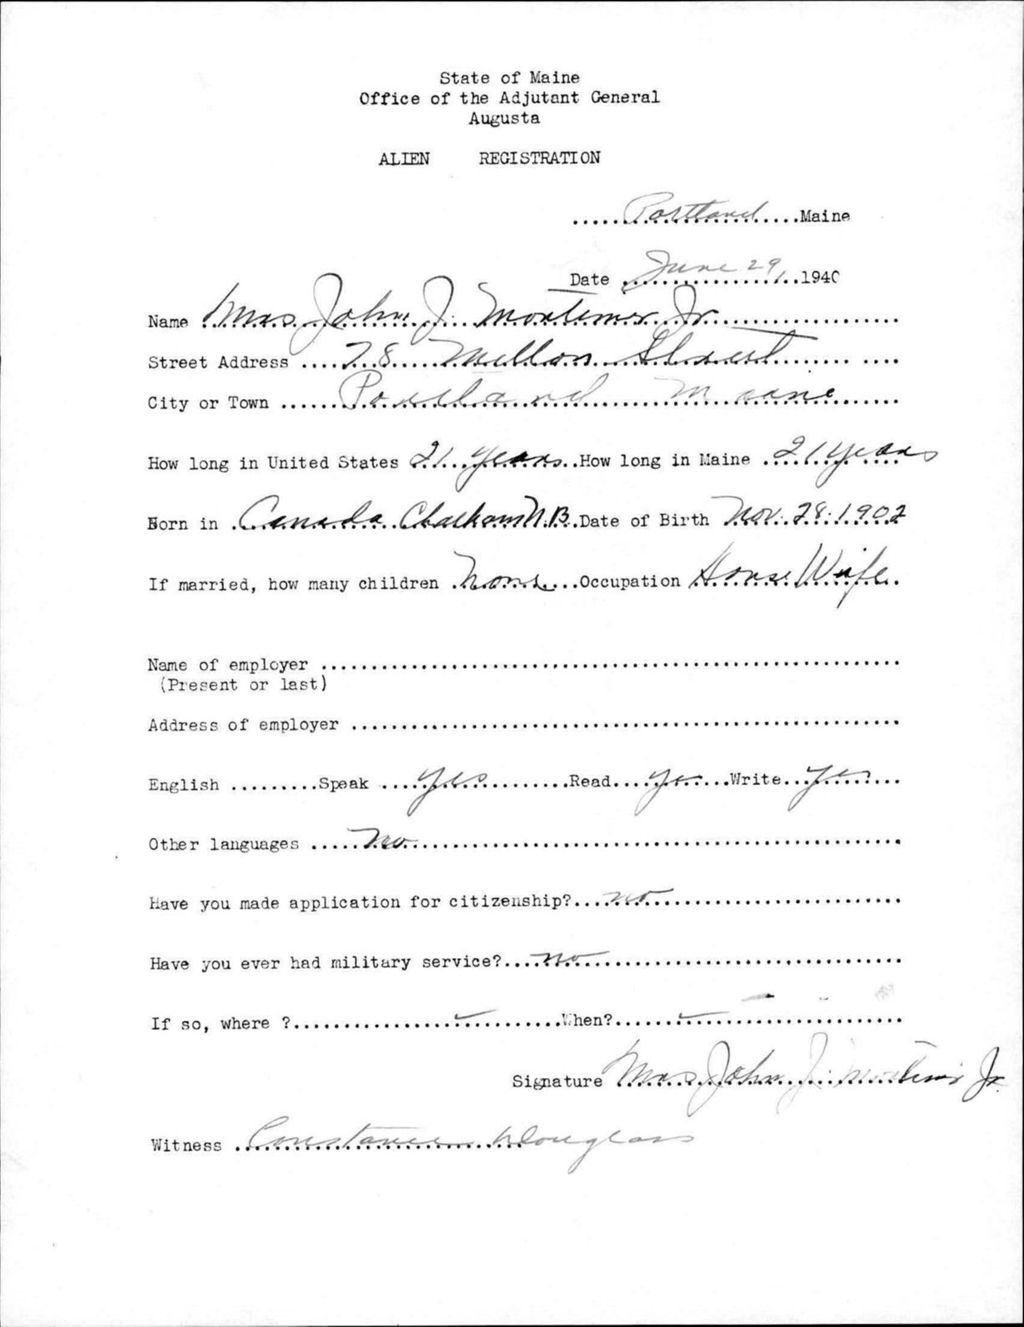 State of Maine
Office of the Adjutant General
Augusta
ALIEN REGISTRATION
.....Portland.....Maine
Date June 29, 1940
Name Mrs. John J. Mortimer Jr.
Street Address 78 Mellon Street
City or Town Portland Maine
How long in United States 21 years How long in Maine 21 years
Born in Canada Chatham N.B. Date of Birth Nov. 28. 1902
If married, how many children none Occupation House Wife
Name of employer
(Present or last)
Address of employer
English .........Speak yes Read yes Write yes
Other languages no
Have you made application for citizenship? no
Have you ever had military service? no
If so, where ? ✓ When? ✓
Signature Mrs. John J. Mortimer Jr.
Witness Constance Douglass